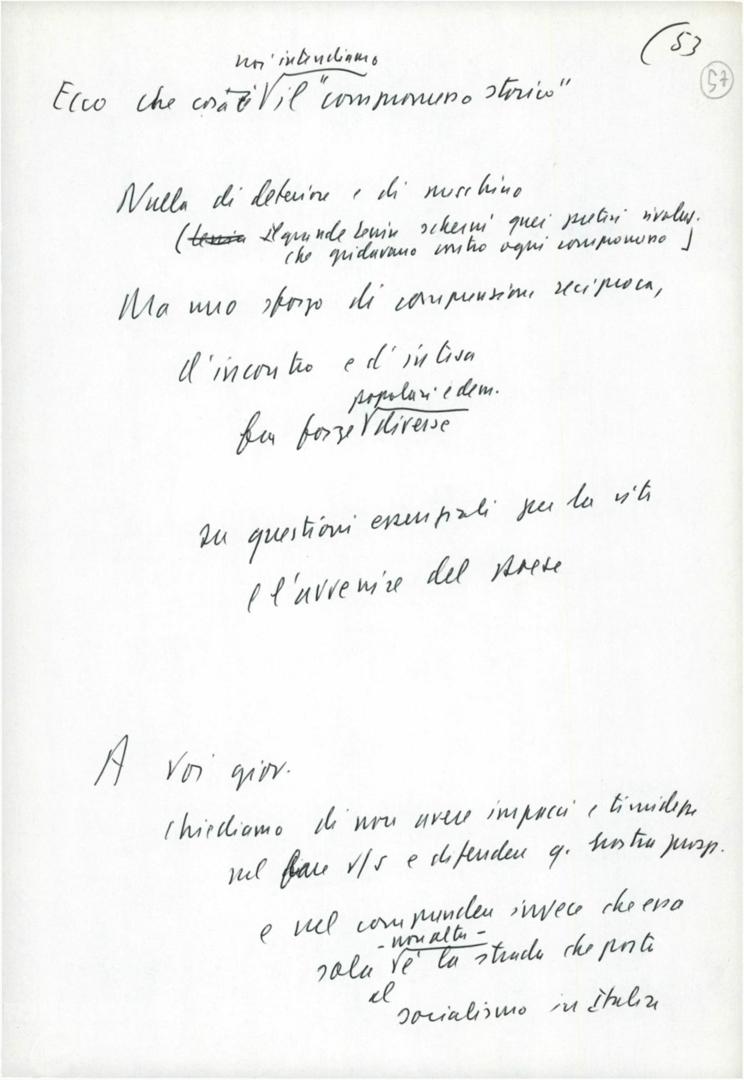 (53
57
noi intendiamo
Ecco che cosa è il "compromesso storico"
Nulla di deteriore e di meschino
(Lenin il grande Lenin schernì quei pretesi rivoluz.
che gridavano contro ogni compromesso)
Ma uno sforzo di comprensione reciproca,
d'incontro e d'intesa
popolari e dem.
fra forze diverse
su questioni essenziali per la vita
e l'avvenire del paese
A voi giov.
chiediamo di non avere impacci e timidezze
nel fare v/s e difendere q. nostra prosp.
e nel comprendere invece che essa
- non altra -
sola è la strada che porti
al
socialismo in Italia